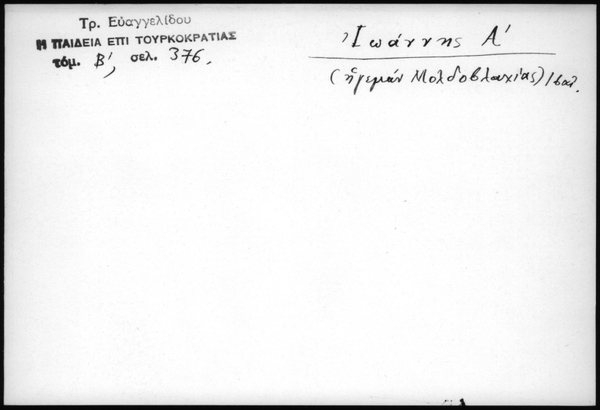 Τρ. Εὐαγγελίδου
Η ΠΑΙΔΕΙΑ ΕΠΙ ΤΟΥΡΚΟΚΡΑΤΙΑΣ
τόμ. Β', σελ. 376.
Ἰωάννης Α'
(ἡγεμὼν Μολδοβλαχίας)